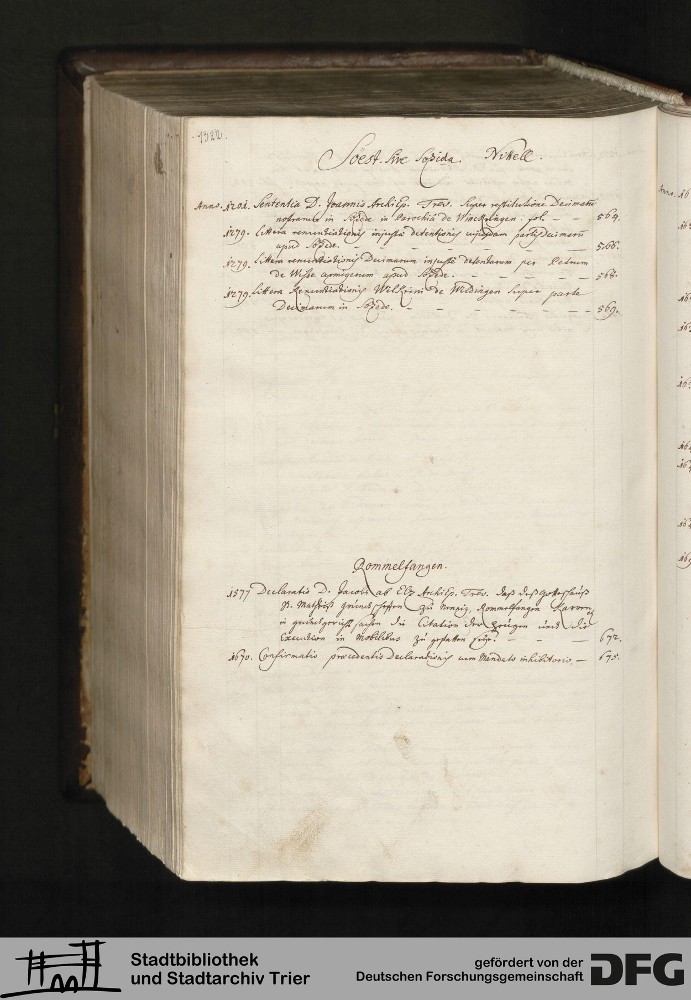 1322.
Soest. sive Sozida. Nittell.
Anno. 1202. Sententia D. Joannis Archiep. Trev. super restitutione Decimarum
nostrarum in Sozede in Parochia de Winckringen. fol. - - 564.
1279. Littera renuntiationis injustae detentionis cujusdam partis Decimarum
apud Sozede. - - - - - - 566.
1279. Littera renuntiationis Decimarum injuste detentarum per Petrum
de Wisse armigerum apud Sozede. - - - - -
1279. Littera Renuntiationis Wilhelmi de Wildingen super parte
Decimarum in Sozede. - - - - - - - 569.
Rommelfangen.
1577 Declaratio D. Jacobi ab Elz Archiep. Trev. daß deß Gotteshauß
St. Matheiß grundscheffen zu Rommelfangen
in grundgerichtssachen die Citation der zeugen und die
Execution in Mobilibus zu gestatten seye. - - - - 672.
1670. Confirmatio praecedentis Declarationis cum Mandato inhibitorio. - 675.
Anno. 16
Stadtbibliothek
und Stadtarchiv Trier
gefördert von der
Deutschen Forschungsgemeinschaft
DFG